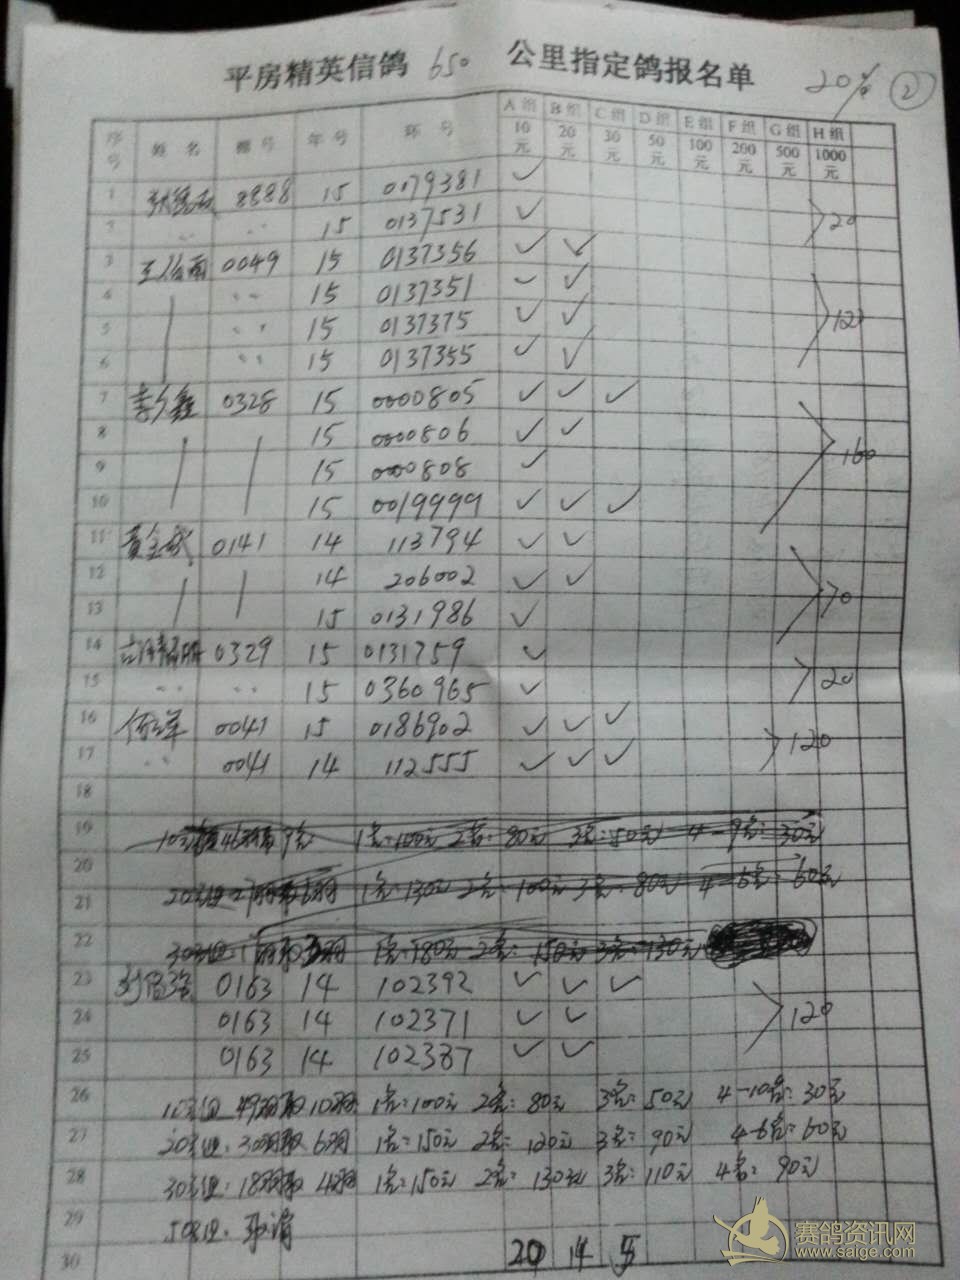 平房精英信鸽 650 公里指定鸽报名单 20% ②
序号 姓名 棚号 年号 环号 A组10元 B组20元 C组30元 D组50元 E组100元 F组200元 G组500元 H组1000元
1 8888 15 0179381 ✓
2 〃 〃 15 0137531 ✓ 20
3 0049 15 0137356 ✓ ✓
4 〃 15 0137351 ✓ ✓
5 〃 15 0137375 ✓ ✓ 120
6 〃 15 0137355 ✓ ✓
7 0328 15 0000805 ✓ ✓ ✓
8 15 0000806 ✓ ✓
9 15 0000808 ✓ 160
10 15 0019999 ✓ ✓ ✓
11 0141 14 113794 ✓ ✓
12 14 206002 ✓ ✓
13 15 0131986 ✓ 70
14 0329 15 0131759 ✓
15 〃 〃 15 0360965 ✓ 20
16 0041 15 0186902 ✓ ✓ ✓
17 〃 0041 14 112555 ✓ ✓ ✓ 120
18
19 1名:100元 2名:80元 3名:50元 4-9名:30元
20
21 1名:130元 2名:100元 3名:80元 4-6名:60元
22 1名:180元 2名:150元 3名:130元
23 0163 14 102392 ✓ ✓ ✓
24 0163 14 102371 ✓ ✓ 120
25 0163 14 102387 ✓ ✓
26 10元组:49羽取10羽 1名:100元 2名:80元 3名:50元 4-10名:30元
27 20元组:30羽取6羽 1名:150元 2名:120元 3名:90元 4-6名:60元
28 30元组:18羽取4羽 1名:150元 2名:130元 3名:110元 4名:90元
29 50元组:取消
30 20 14 5
赛鸽资讯网
www.saige.com